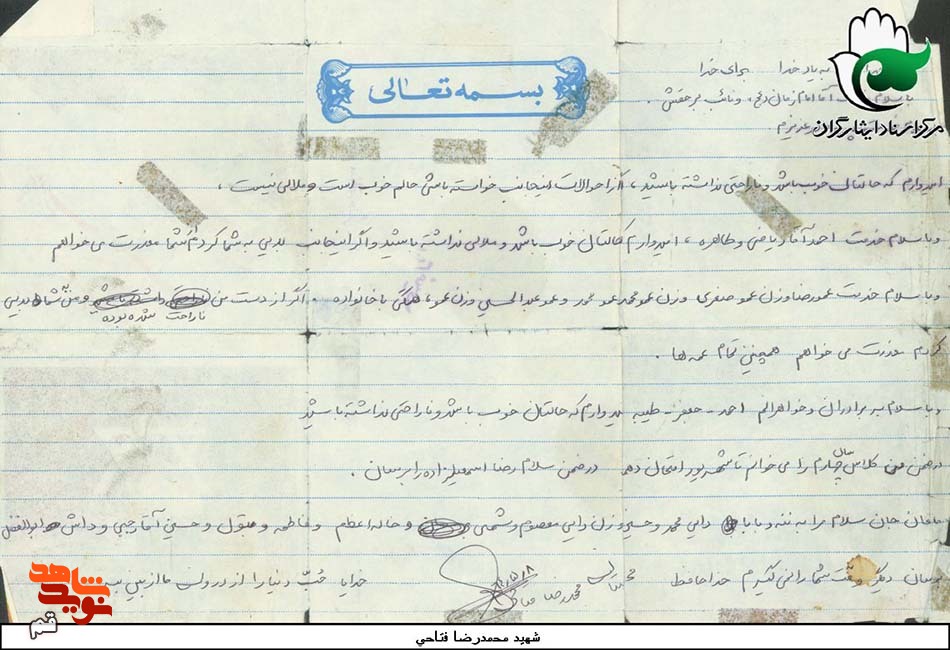 بسمه تعالی
به یاد خدا برای خدا
با سلام آقا امام زمان (عج) و نائب برحقش .
عزیزم
امیدوارم که حالتان خوب باشد و ناراحتی نداشته باشید ، اگر از احوالات اینجانب خواسته باشی حالم خوب است و ملالی نیست ،
و با سلام خدمت احمد آقا و طاهره ، امیدوارم که حالتان خوب باشد و ملالی نداشته باشید و اگر اینجانب بدیی به شما کردم از شما معذرت می خواهم
و با سلام خدمت عمو رضا و زن عمو صغری و زن عمو محمد عمو محمد و عمو عبدالحسین و زن عمو ، همگی با خانواده . اگر از دست من ناراحت شده بوده و من به شما بدیی
کردم معذرت می خواهم همچنین تمام عمه ها .
و با سلام به برادران و خواهرانم احمد - جعفر - طیبه امیدوارم که حالتان خوب باشد و ناراحتی نداشته باشید
در ضمن من کلاس سال چهارم را می خوانم تا شهریور امتحان دهم در ضمن سلام رضا اسمعیل زاده را برسان .
مامان جان سلام مرا به ننه و بابا و دایی محمد و حسین و زن دایی معصوم و شمسی و خاله اعظم و فاطمه و بتول و حسین آقا رجبی و داش ابوالفضل
برسان دیگر وقت شما را نمی گیرم خداحافظ محمدرضا فتاحی خدایا حُبّ دنیا را از درون ما از بین ببر
مرکز اسناد ایثارگران
نوید شاهد
قم
شهید محمدرضا فتاحی